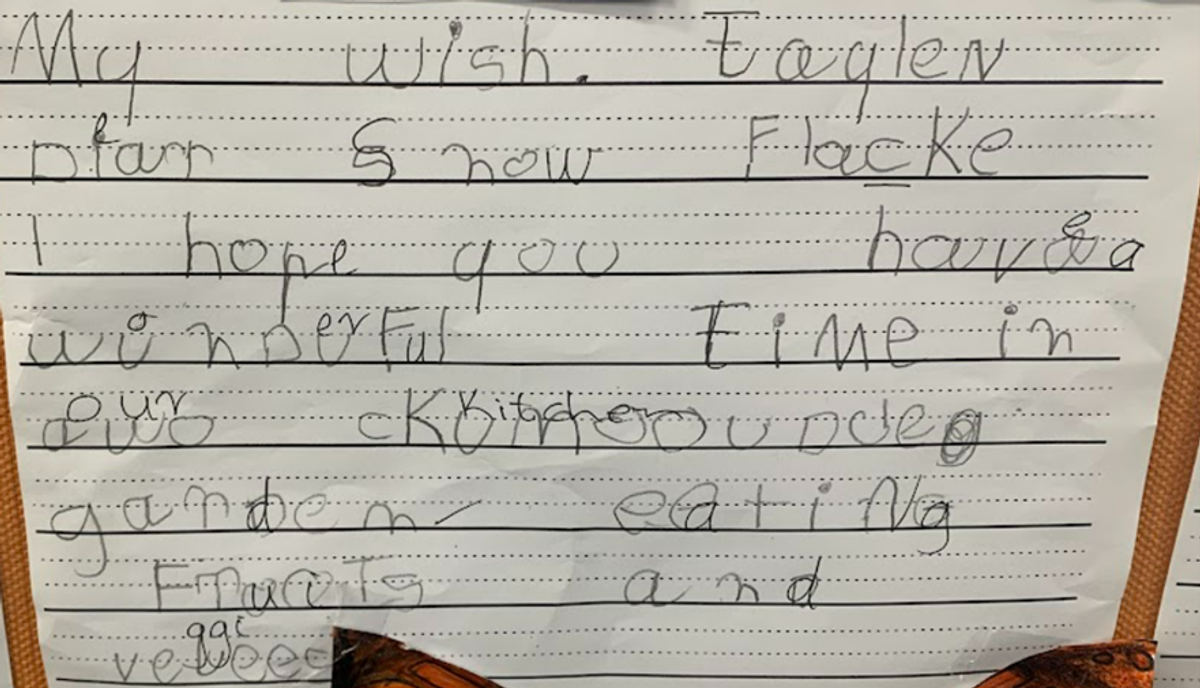 My wish. Taylen
Starr Snow Flacke
I hope you have a
wonderful Time in
our Kitchen
garden eating
Fruits and